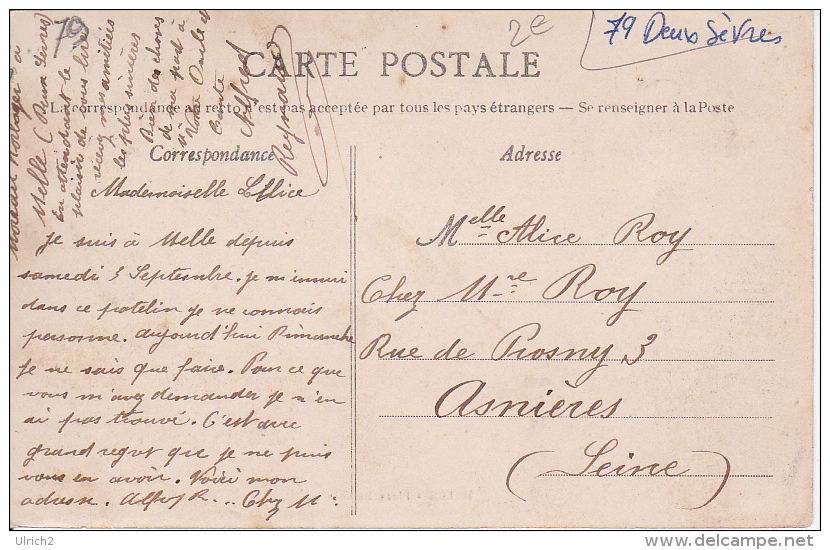 79
2€
79 Deux Sèvres
CARTE POSTALE
La correspondance au recto n'est pas acceptée par tous les pays étrangers — Se renseigner à la Poste
Correspondance
Adresse
Mademoiselle Allice
Je suis à Melle depuis
samedi 3 Septembre. Je m'ennui
dans ce patelin je ne connais
personne. aujourd'hui Dimanche
je ne sais que faire. Pour ce que
vous m'avez demander je n'en
ai pas trouvé. C'est avec
grand regret que je ne puis
vous en avoir. Voici mon
adresse. Alfred R... Chez M.
Moreau Horloger à
Melle (Deux Sèvres)
En attendant le
plaisir de vous lire
recevez mes amitiées
les plus sincères
Bien des choses
de ma part à
votre Oncle et
Tante
Alfred
Reynaud
Melle Alice Roy
Chez Mre Roy
Rue de Prosny 3
Asnières
(Seine)
Ulrich2
delcampe.net